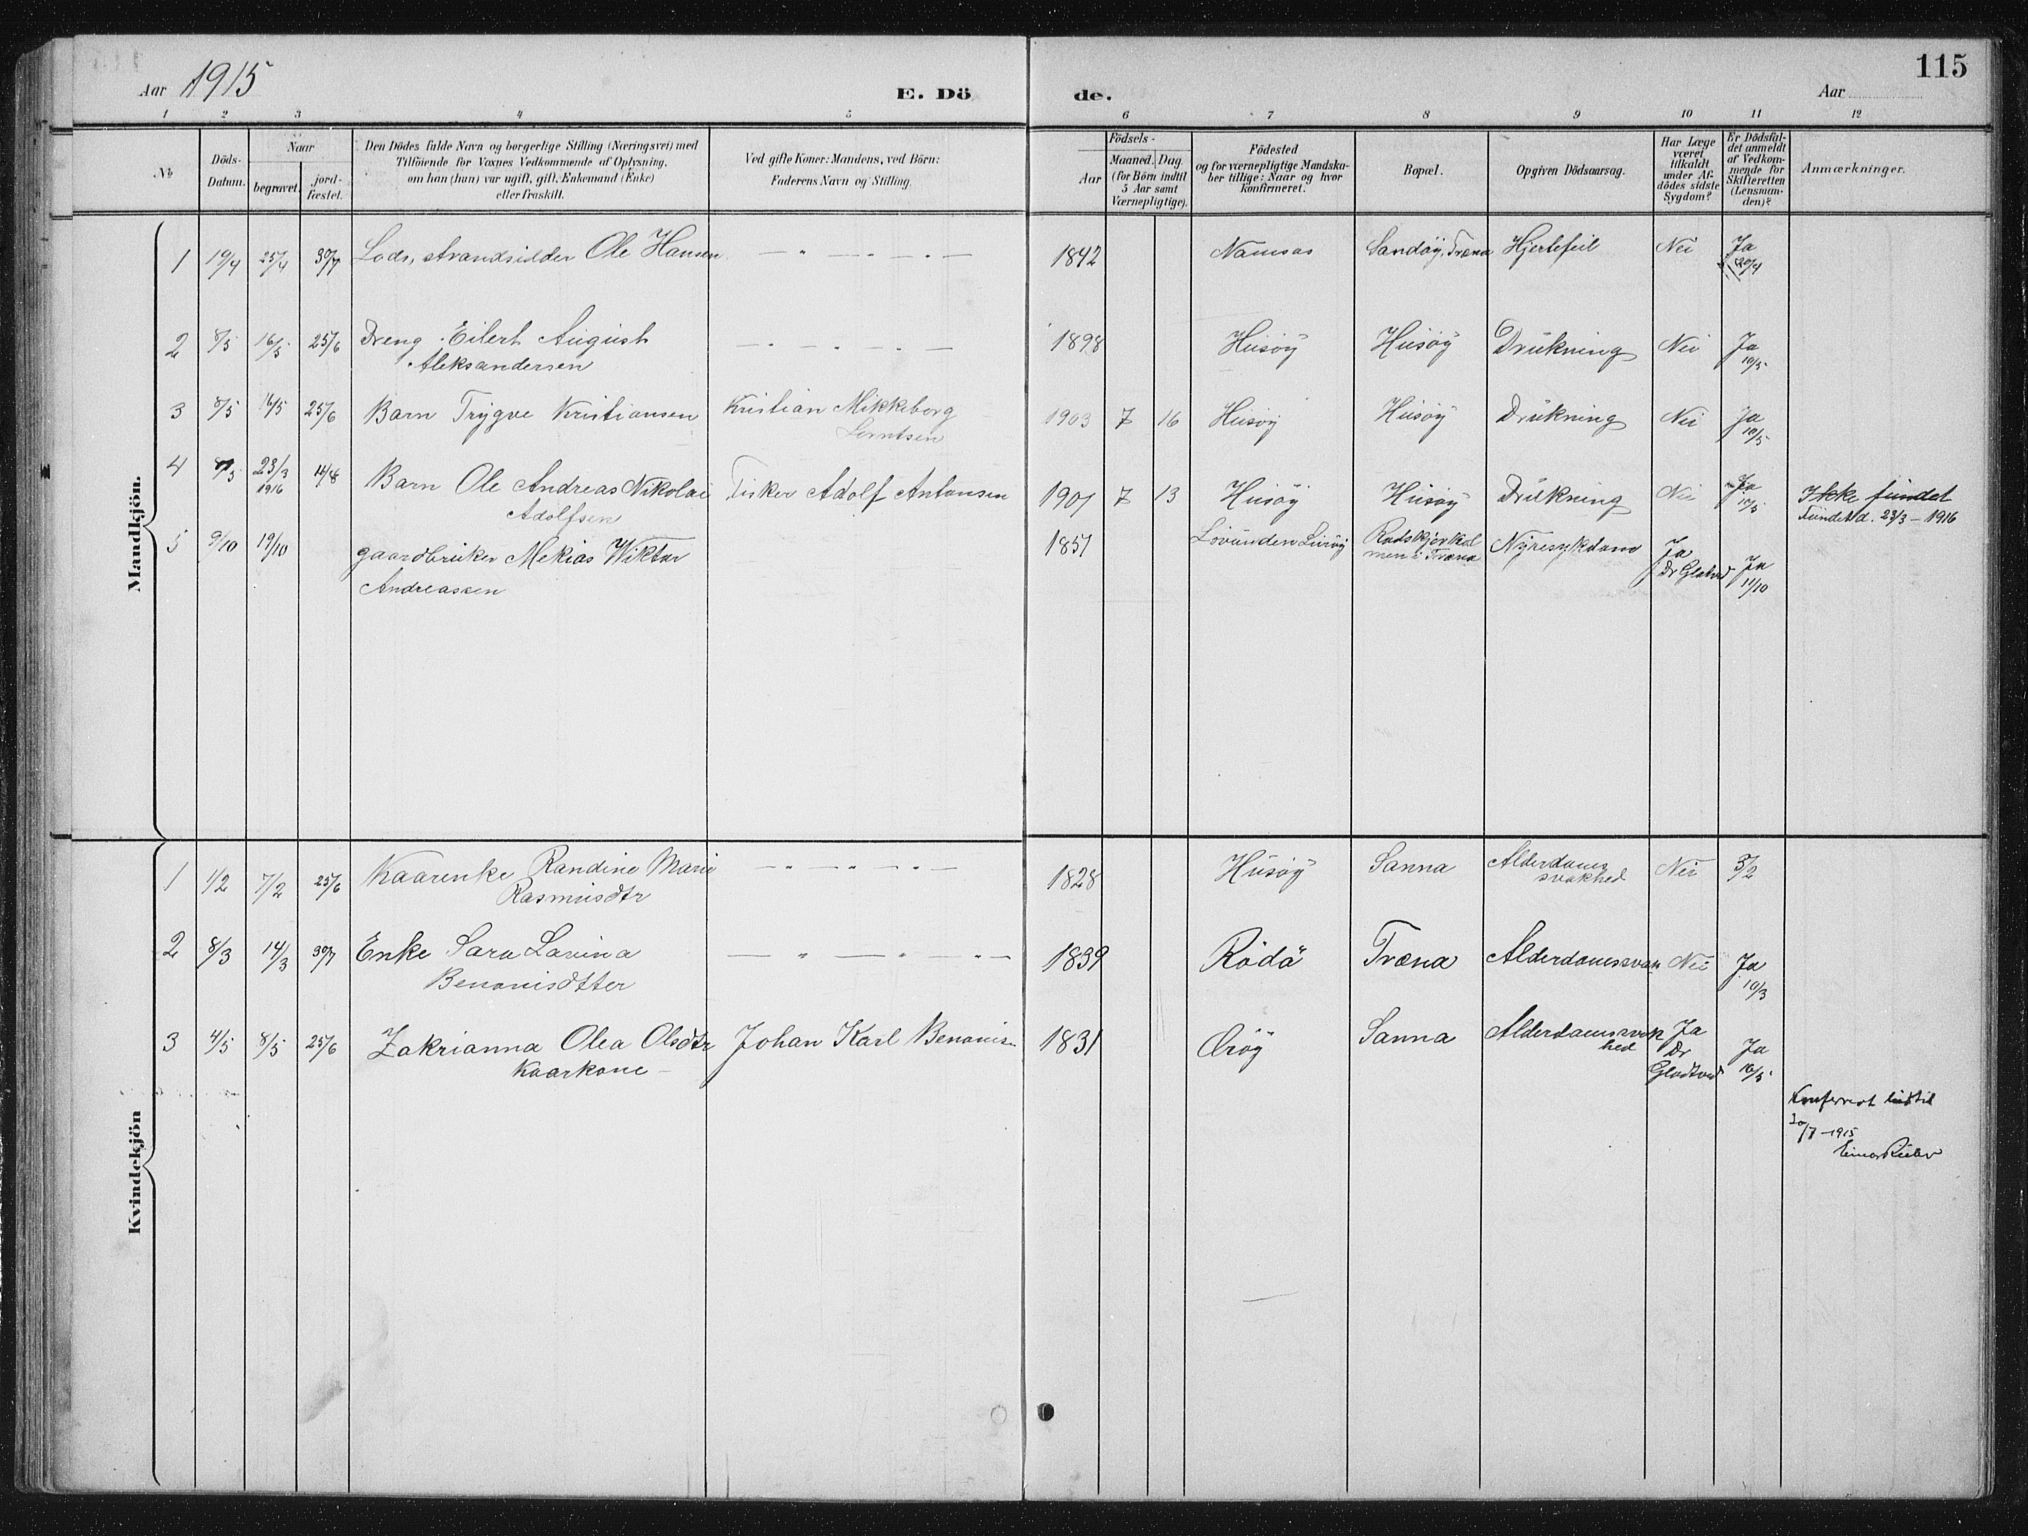 115
Aar 1915
E. Dö
de.
Aar
1 2 3 4 5 6 7 8 9 10 11 12
№
Döds-
Datum.
Naar
begravet.
jord-
fæstet.
Den Dödes fulde Navn og borgerlige Stilling (Næringsvei) med
Tilföiende for Voxnes Vedkommende af Oplysning,
om han (hun) var ugift, gift, Enkemand (Enke)
eller fraskilt.
Ved gifte Koner: Mandens, ved Börn:
Faderens Navn og Stilling.
Födsels-
Aar
Maaned. Dag
(for Börn indtil
5 Aar samt
Værnepligtige).
Födested
og for værnepligtige Mandska-
ber tillige: Naar og hvor
konfirmeret.
Bopæl.
Opgiven Dödsaarsag.
Har Læge
været
tilkaldt
under Af-
dödes sidste
Sygdom?
Er Dödsfal-
det anmeldt
af Vedkom-
mende for
Skifteretten
(Lensman-
den)?
Anmærkninger.
Mandkjön.
1 19/4 25/4 30/7 Lods, strandsidder Ole Hansen — " — — — — 1842 Namsos Sandöy, Træna Hjertefeil Nei Ja
20/4
2 8/5 16/5 25/6 Dreng Eilert August — — — — — 1898 Husöy Husöy Drukning Nei Ja
Aleksandersen 10/5
3 8/5 16/5 25/6 Barn Trygve Kristiansen Kristian Mikkeborg 1903 7 16 Husöy Husöy Drukning Nei Ja
Lorntsen 10/5
4 8/5 23/3 11/8 Barn Ole Andreas Nikolai Fisker Adolf Antonsen 1901 7 13 Husöy Husöy Drukning Nei Ja Ikke fundet
1916 Adolfsen 10/5 Fundet d. 23/3 - 1916
5 9/10 19/10 gaardbruker Mekias Wiktor 1857 Lovunden Luröy Nyresykdom Ja
men i Træna Dr Ja
Andreassen 11/10
Kvindekjön
1 1/2 7/2 25/6 Kaarenke Randine Marie — — — — — 1828 Husöy Sanna Alderdoms Nei 3/2
Rasmusdtr svakhed
2 8/3 14/3 30/7 Enke Sara Lavina — " — — " — 1839 Rödö Træna Alderdomssvak Nei Ja
Benonisdtter 10/3
3 4/5 8/5 25/6 Zakrianna Olea Olsdtr Johan Karl Benonis- 1831 Sanna Alderdomssvak Ja
Kaarkone — hed Dr Ja
10/5
Konferert indtil
20/7 - 1915
Einar